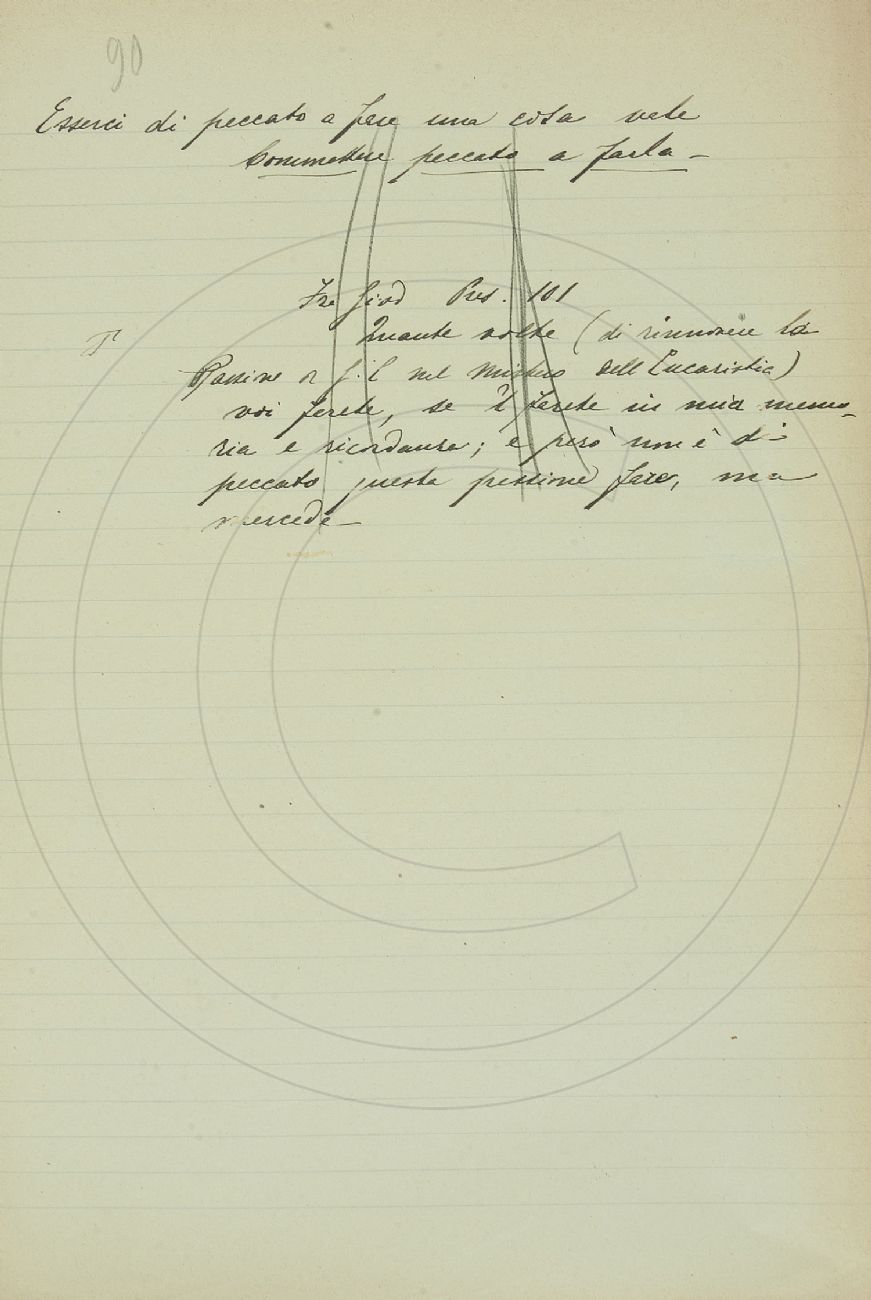 90
Esserci di peccato a fare una cosa vale
Commettere peccato a farla -
Fra Giord Pred. 101
Quante volte (di rinnovare la
Passione di G. C. nel Mistero dell'Eucaristia)
voi farete, se 'l farete in mia memo-
ria e ricordanza; e però non è di
peccato questa passione fare, ma
mercede -